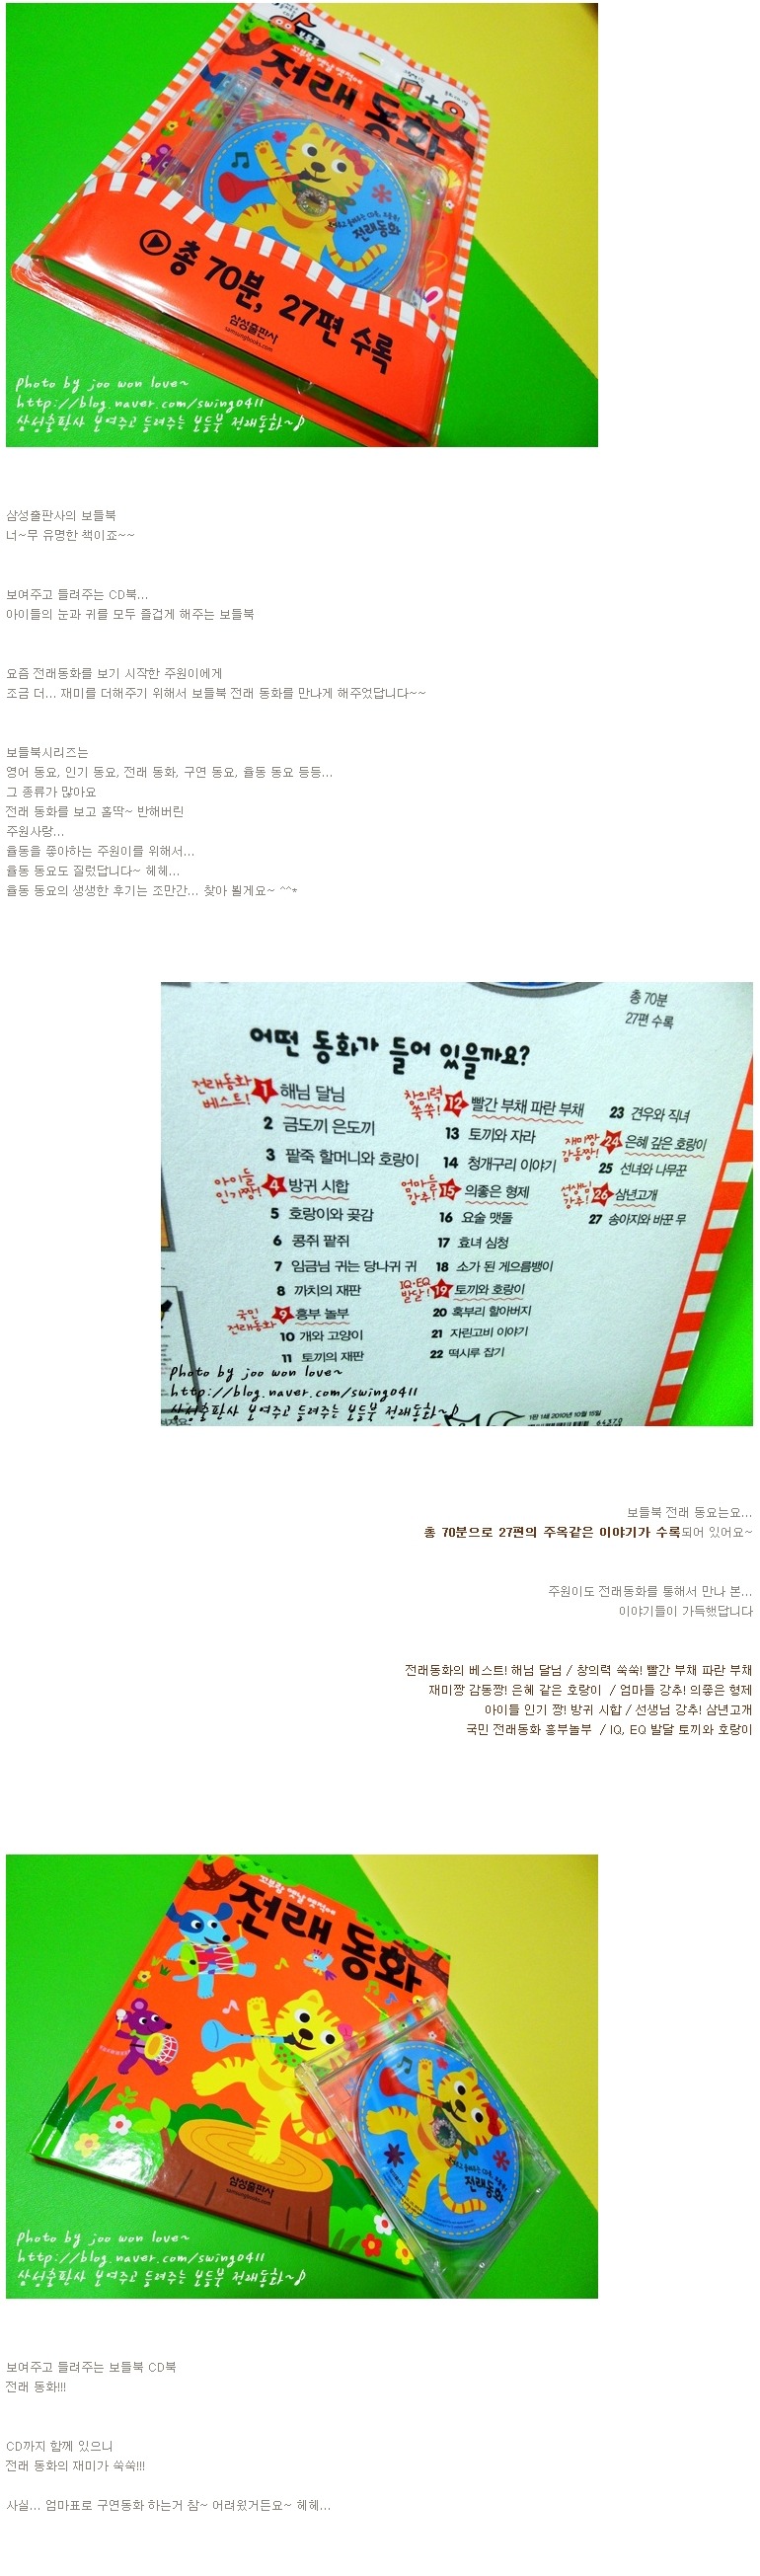 꼬부랑 옛날 옛적에
전래 동화
전래동화
총 70분, 27편 수록
삼성출판사
samsungbooks.com
Photo by joo won love~
http://blog.naver.com/swing0411
삼성출판사 보여주고 들려주는 보들북 전래동화~♪
삼성출판사의 보들북
너~무 유명한 책이죠~~
보여주고 들려주는 CD북...
아이들의 눈과 귀를 모두 즐겁게 해주는 보들북
요즘 전래동화를 보기 시작한 주원이에게
조금 더... 재미를 더해주기 위해서 보들북 전래 동화를 만나게 해주었답니다~~
보들북시리즈는
영어 동요, 인기 동요, 전래 동화, 구연 동요, 율동 동요 등등...
그 종류가 많아요
전래 동화를 보고 홀딱~ 반해버린
주원사랑...
율동을 좋아하는 주원이를 위해서...
율동 동요도 질렀답니다~ 헤헤...
율동 동요의 생생한 후기는 조만간... 찾아 뵐게요~ ^^*
총 70분
27편 수록
어떤 동화가 들어 있을까요?
전래동화 베스트! 1 해님 달님
2 금도끼 은도끼
3 팥죽 할머니와 호랑이
아이들 인기짱! 4 방귀 시합
5 호랑이와 곶감
6 콩쥐 팥쥐
7 임금님 귀는 당나귀 귀
8 까치의 재판
국민 전래동화 9 흥부 놀부
10 개와 고양이
11 토끼의 재판
창의력 쑥쑥! 12 빨간 부채 파란 부채
13 토끼와 자라
14 청개구리 이야기
엄마들 강추! 15 의좋은 형제
16 요술 맷돌
17 효녀 심청
18 소가 된 게으름뱅이
IQ·EQ 발달! 19 토끼와 호랑이
20 혹부리 할아버지
21 자린고비 이야기
22 떡시루 잡기
23 견우와 직녀
재미짱 감동짱! 24 은혜 갚은 호랑이
25 선녀와 나무꾼
선생님 강추! 26 삼년고개
27 송아지와 바꾼 무
Photo by joo won love~
http://blog.naver.com/swing0411
삼성출판사 보여주고 들려주는 보들북 전래동화~♪
1판 1쇄 2010년 10월 15일
보들북 전래 동요는요...
총 70분으로 27편의 주옥같은 이야기가 수록되어 있어요~
주원이도 전래동화를 통해서 만나 본...
이야기들이 가득했답니다
전래동화의 베스트! 해님 달님 / 창의력 쑥쑥! 빨간 부채 파란 부채
재미짱 감동짱! 은혜 같은 호랑이 / 엄마들 강추! 의좋은 형제
아이들 인기 짱! 방귀 시합 / 선생님 강추! 삼년고개
국민 전래동화 흥부놀부 / IQ, EQ 발달 토끼와 호랑이
꼬부랑 옛날 옛적에
전래 동화
전래동화
삼성출판사
samsungbooks.com
Photo by joo won love~
http://blog.naver.com/swing0411
삼성출판사 보여주고 들려주는 보들북 전래동화~♪
보여주고 들려주는 보들북 CD북
전래 동화!!!
CD까지 함께 있으니
전래 동화의 재미가 쑥쑥!!!
사실... 엄마표로 구연동화 하는거 참~ 어려웠거든요~ 헤헤...